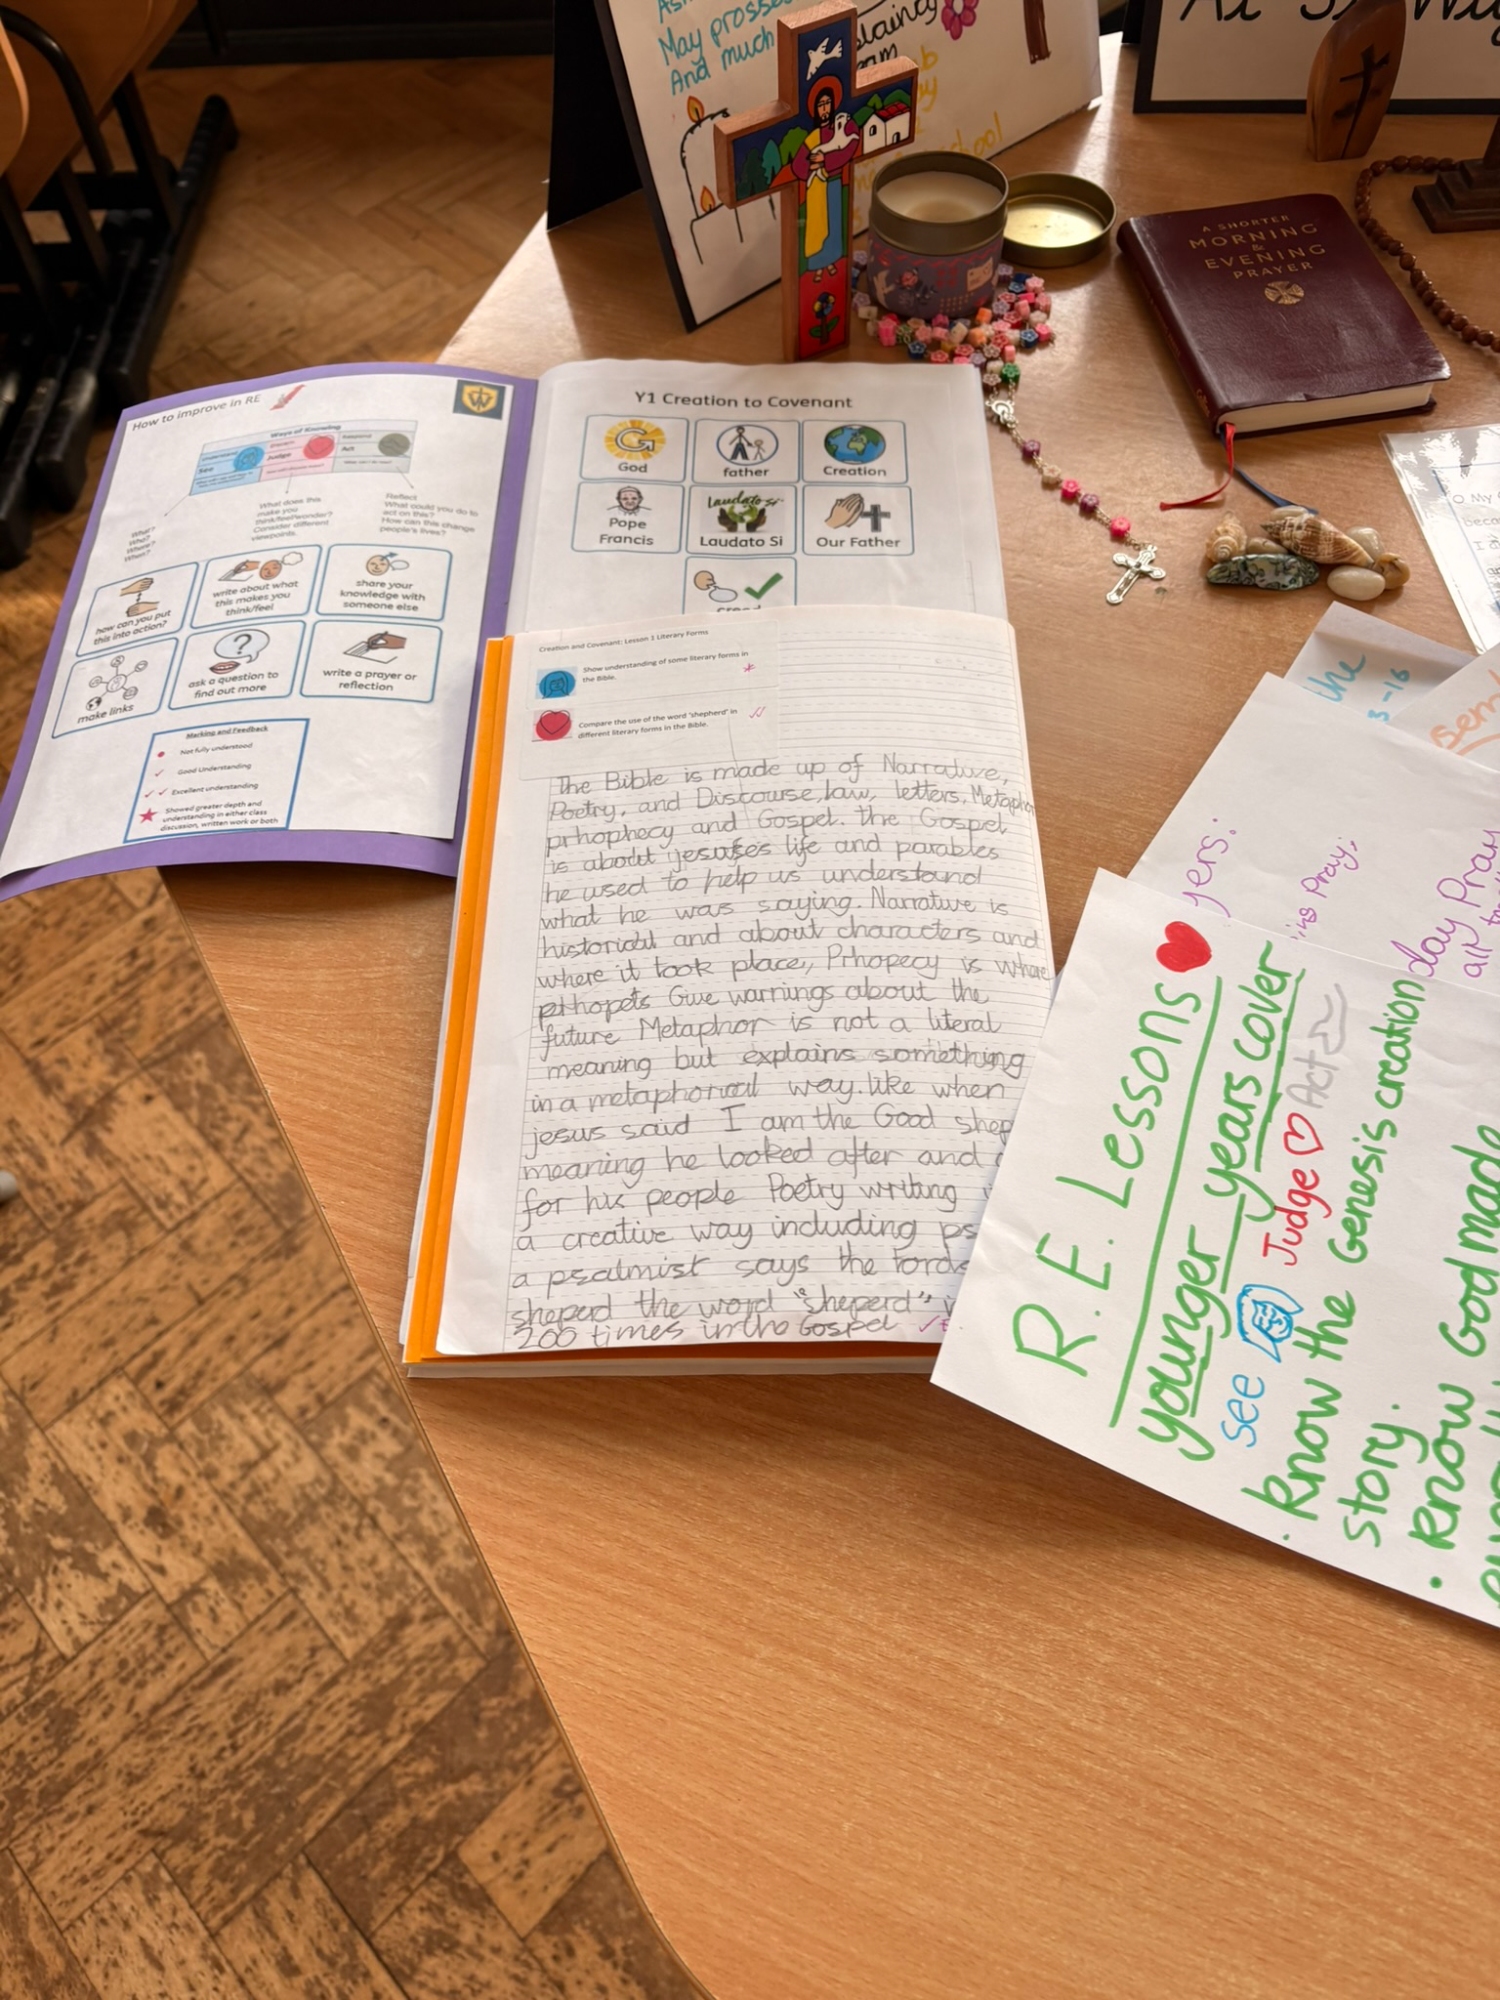 May prosses
And much
A SHORTER
MORNING
&
EVENING
PRAYER
How to improve in RE
Ways of Knowing
Understand
See
Judge
Respond
Act
What?
Who?
Where?
When?
What does this
make you
think/feel/wonder?
Consider different
viewpoints.
Reflect
What could you do to
act on this?
How can this change
people's lives?
how can you put
this into action?
write about what
this makes you
think/feel
share your
knowledge with
someone else
make links
ask a question to
find out more
write a prayer or
reflection
Marking and Feedback
Not fully understood
Good Understanding
Excellent understanding
Showed greater depth and
understanding in either class
discussion, written work or both
Y1 Creation to Covenant
God
father
Creation
Pope
Francis
Laudato Si
Laudato Si
Our Father
Creation and Covenant: Lesson 1 Literary Forms
Show understanding of some literary forms in
the Bible.
Compare the use of the word 'shepherd' in
different literary forms in the Bible.
The Bible is made up of Narrative,
Poetry, and Discourse, law, letters, Metaphor
prhophecy and Gospel. the Gospel
is about jesuses life and parables
he used to help us understand
what he was saying. Narrative is
historical and about characters and
where it took place, Prhopecy is where
prhopets Give warnings about the
future Metaphor is not a literal
meaning but explains something
in a metaphorical way. like when
jesus said I am the Good shep
meaning he looked after and
for his people Poetry writing
a creative way including ps
a psalmist says the lords
sheperd the word "sheperd"
200 times in the Gospel
R.E. Lessons
younger years cover
see Judge Act
. know the Genesis creation
story.
. know God made
the
3-16
yers:
Pray,
day Pray
all